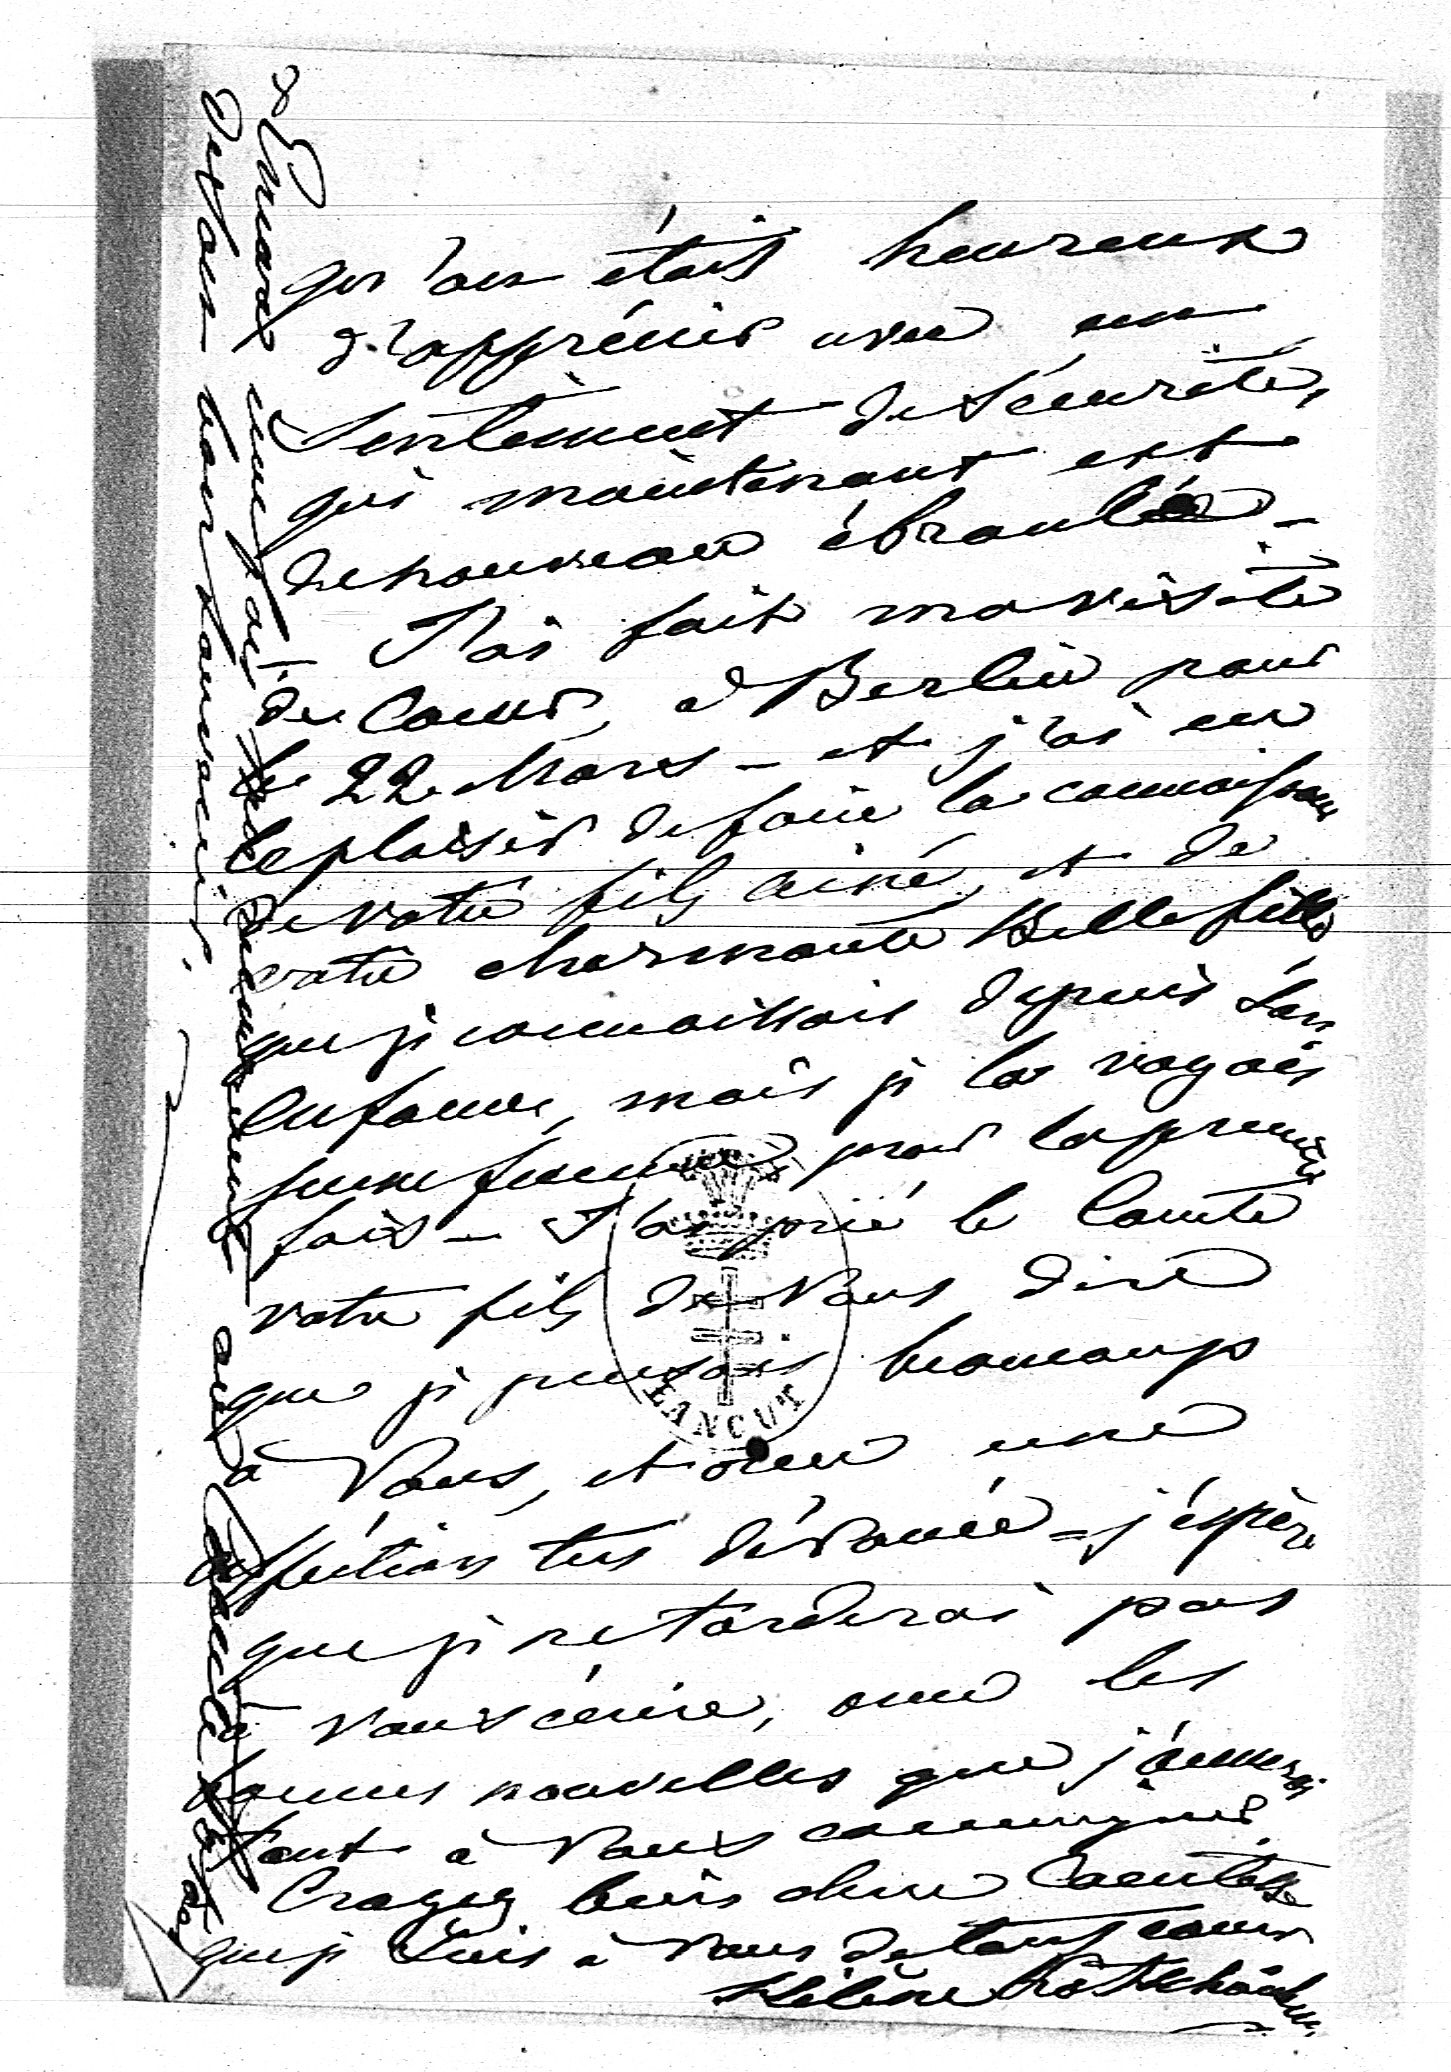 qu'on était heureux
d'apprécier avec un
sentiment de sécurité,
qui maintenant est
de nouveau ébranlée –
J'ai fait ma visite
de Cour, à Berlin pour
le 22 Mars – et j'ai eu
le plaisir de faire la connaissance
de votre fils ainé, et de
votre charmante Bellefille
que je connaissais depuis son
enfance, mais je la voyais
jeune femme pour la première
fois – J'ai prié le Comte
votre fils de Vous dire
que je pensais beaucoup
à Vous, et avec une
affection très dévouée – j'espère
que je ne tarderai pas
à Vous écrire, avec les
bonnes nouvelles que j'aimerai
tant à Vous communiquer
Croyez bien chère Comtesse
que je suis à Vous de tout coeur
Hélène
ŁAŃCUT
de Vous